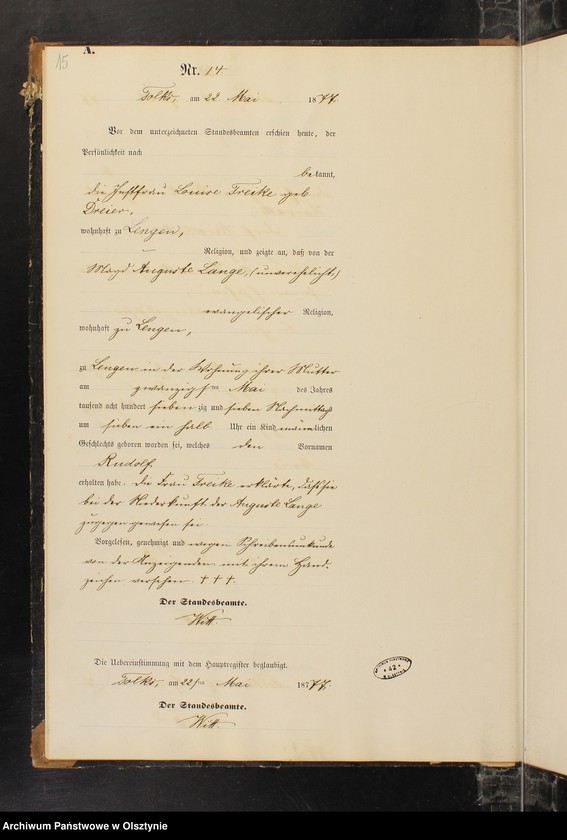 15
A.
Nr. 14.
Tolks, am 22 Mai 1877.
Vor dem unterzeichneten Standesbeamten erschien heute, der
Persönlichkeit nach
bekannt,
die Instfrau Louise Freike geb
Dreier,
wohnhaft zu Lengen,
Religion, und zeigte an, daß von der
Magd Auguste Lange, (unverehelicht)
evangelischer Religion,
wohnhaft zu Lengen,
zu Lengen in der Wohnung ihrer Mutter
am zwanzigsten Mai des Jahres
tausend acht hundert siebenzig und sieben Nachmittags
um sieben ein halb Uhr ein Kind männlichen
Geschlechts geboren worden sei, welches den Vornamen
Rudolf
erhalten habe. Die Frau Freike erklärte, daß sie
bei der Niederkunft der Auguste Lange
zugegen gewesen sei.
Vorgelesen, genehmigt und wegen Schreibensunkunde
von der Anzeigenden mit ihrem Hand-
zeichen versehen. + + +.
Der Standesbeamte.
Witt.
Die Uebereinstimmung mit dem Hauptregister beglaubigt.
Tolks, am 22sten Mai 1877.
Der Standesbeamte.
Witt.
42
Archiwum Państwowe w Olsztynie